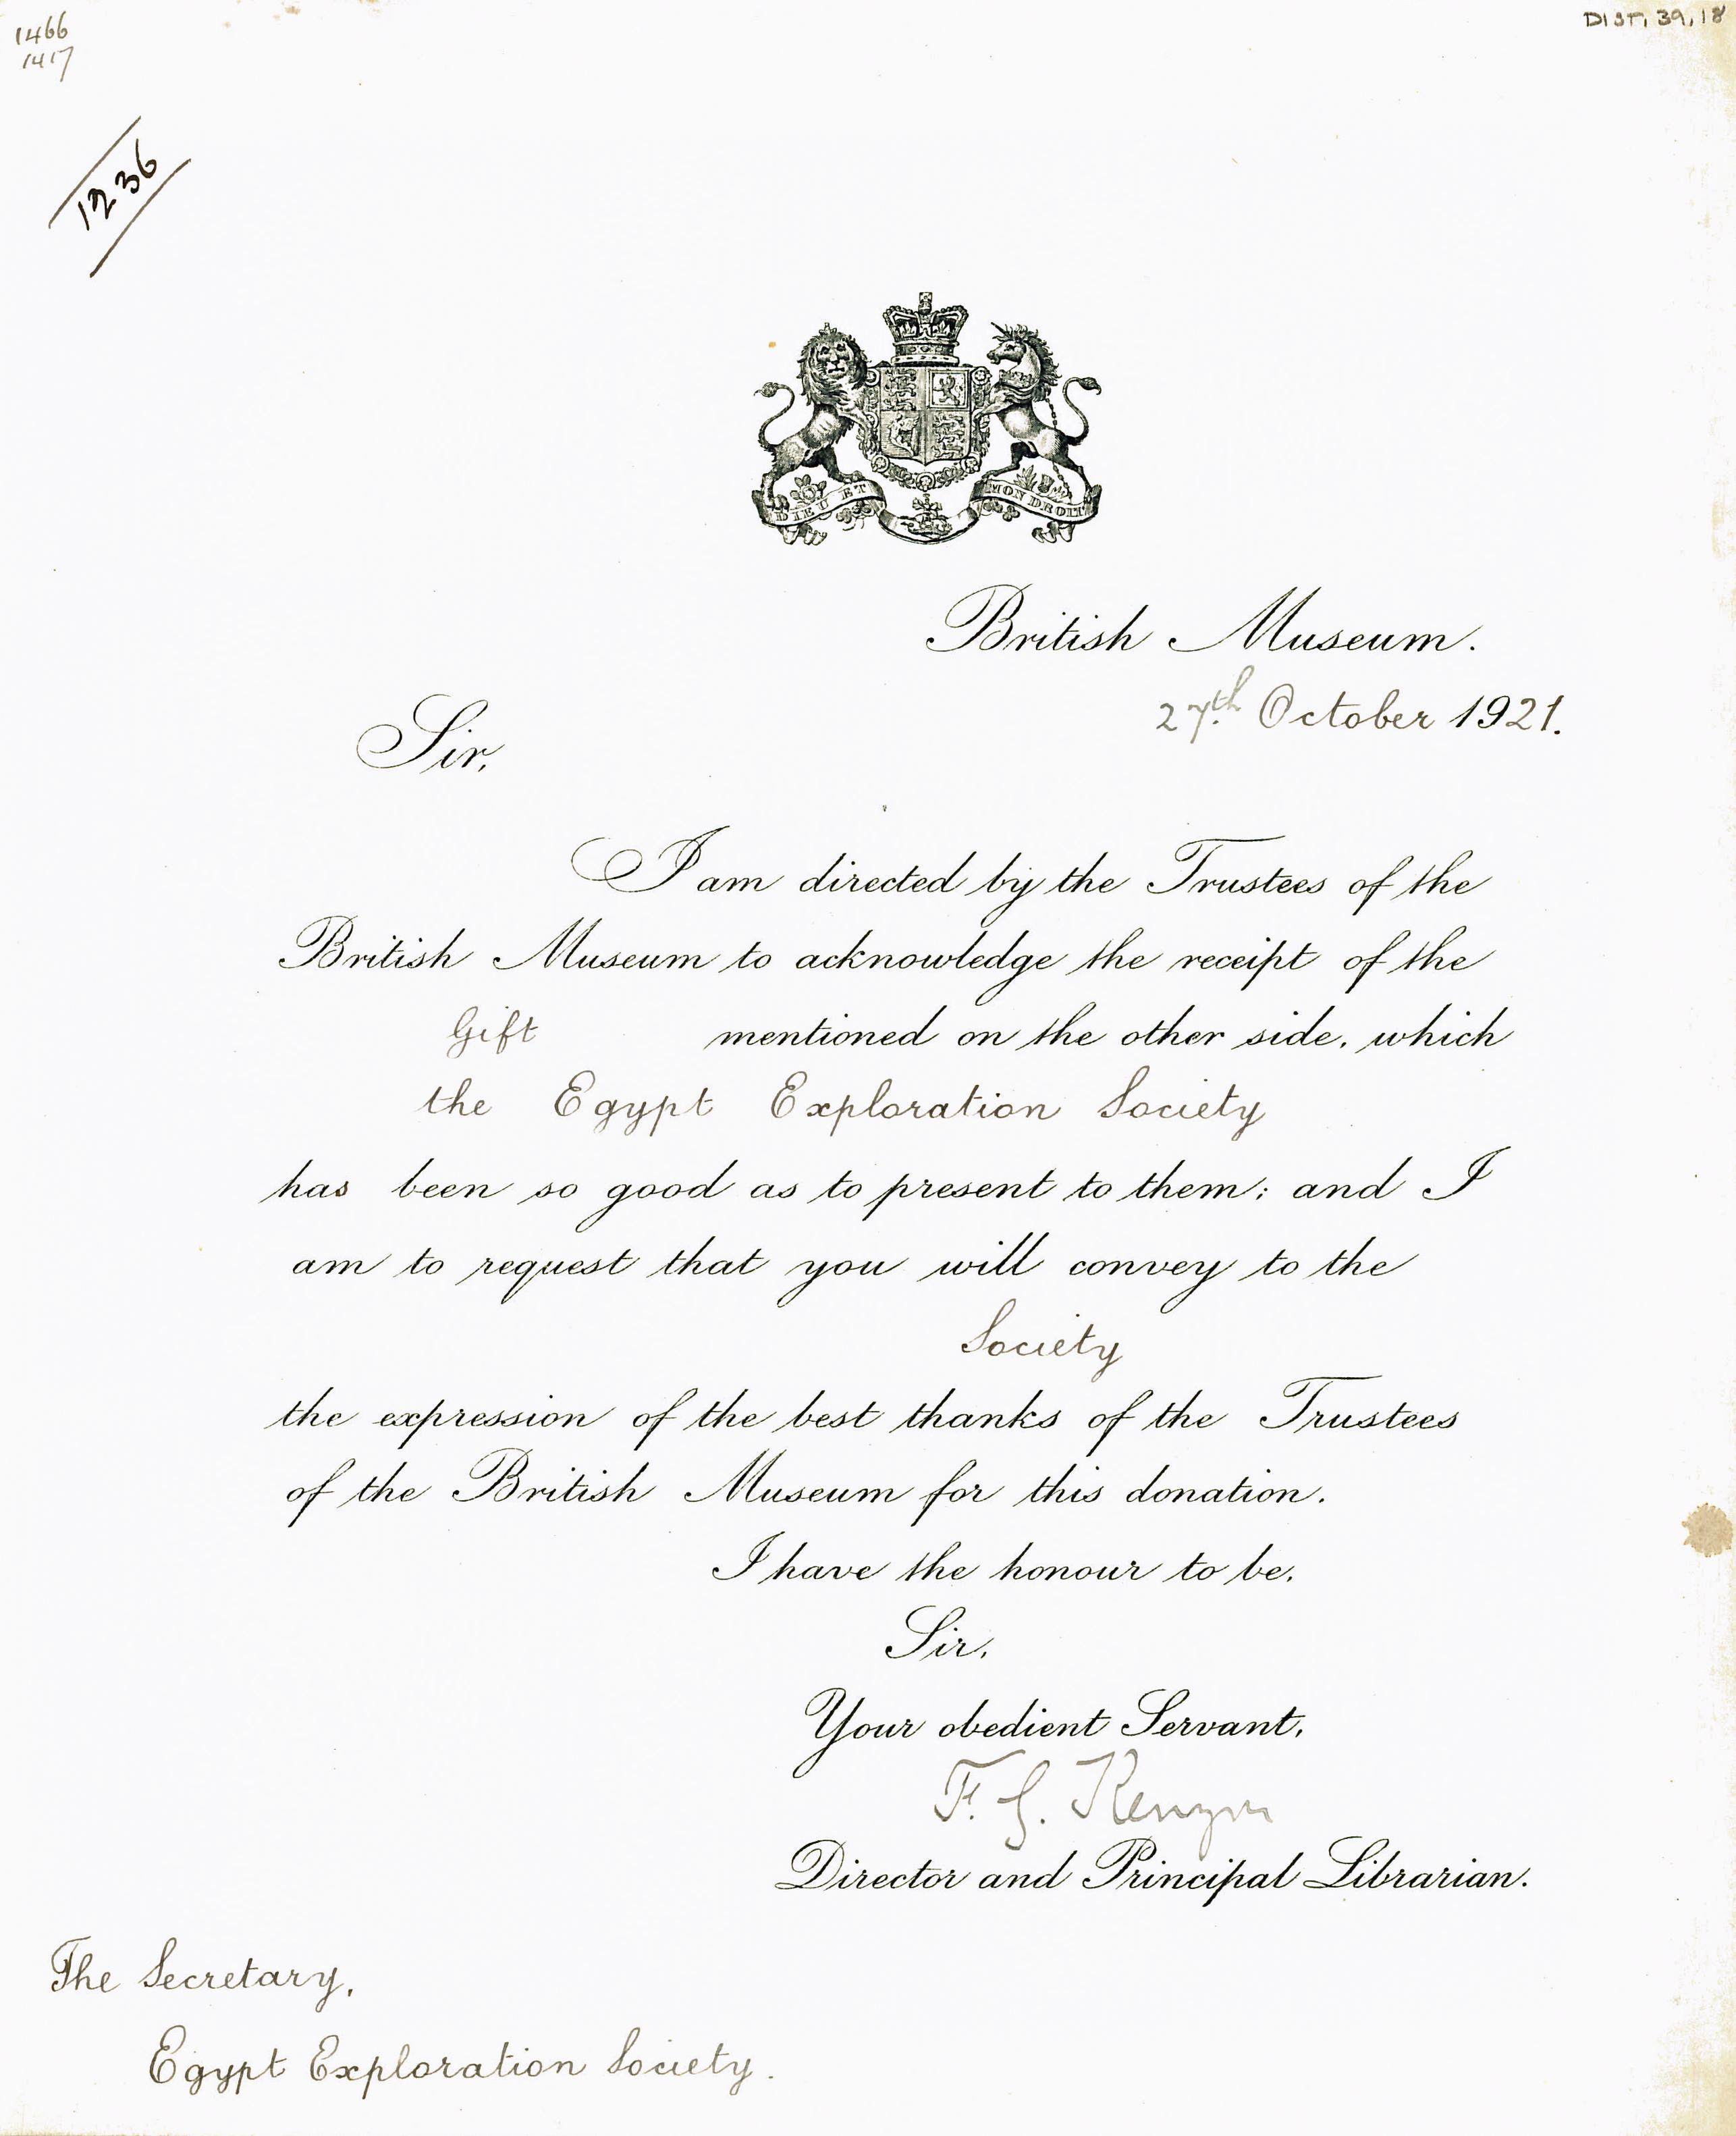 1466
1417
DIST. 39.18
1236
DIEU ET MON DROIT
British Museum.
27th October 1921.
Sir,
I am directed by the Trustees of the
British Museum to acknowledge the receipt of the
Gift mentioned on the other side, which
the Egypt Exploration Society
has been so good as to present to them; and I
am to request that you will convey to the
Society
the expression of the best thanks of the Trustees
of the British Museum for this donation.
I have the honour to be,
Sir,
Your obedient Servant,
F. G. Kenyon
Director and Principal Librarian.
The Secretary,
Egypt Exploration Society.